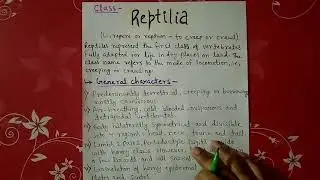 Class-
Reptilia
(L. repere or reptum - to creep or crawl)
Reptiles represent the first class of vertebrates
fully adapted for life in dry places on land. The
class name refers to the mode of locomotion, i.e.,
creeping or crawling.
General characters-
Predominantly terrestrial, creeping or burrowing
mostly carnivorous
Air-breathing, cold blooded
tetrapodal vertebrates.
Body bilaterally symmetrical and divisible
into 4 regions: head, neck, trunk and tail.
Limbs 2 pairs, pentadactyle. Digits provided
with horny claws. However,
a few lizards and all snakes
Exoskeleton of horny epidermal